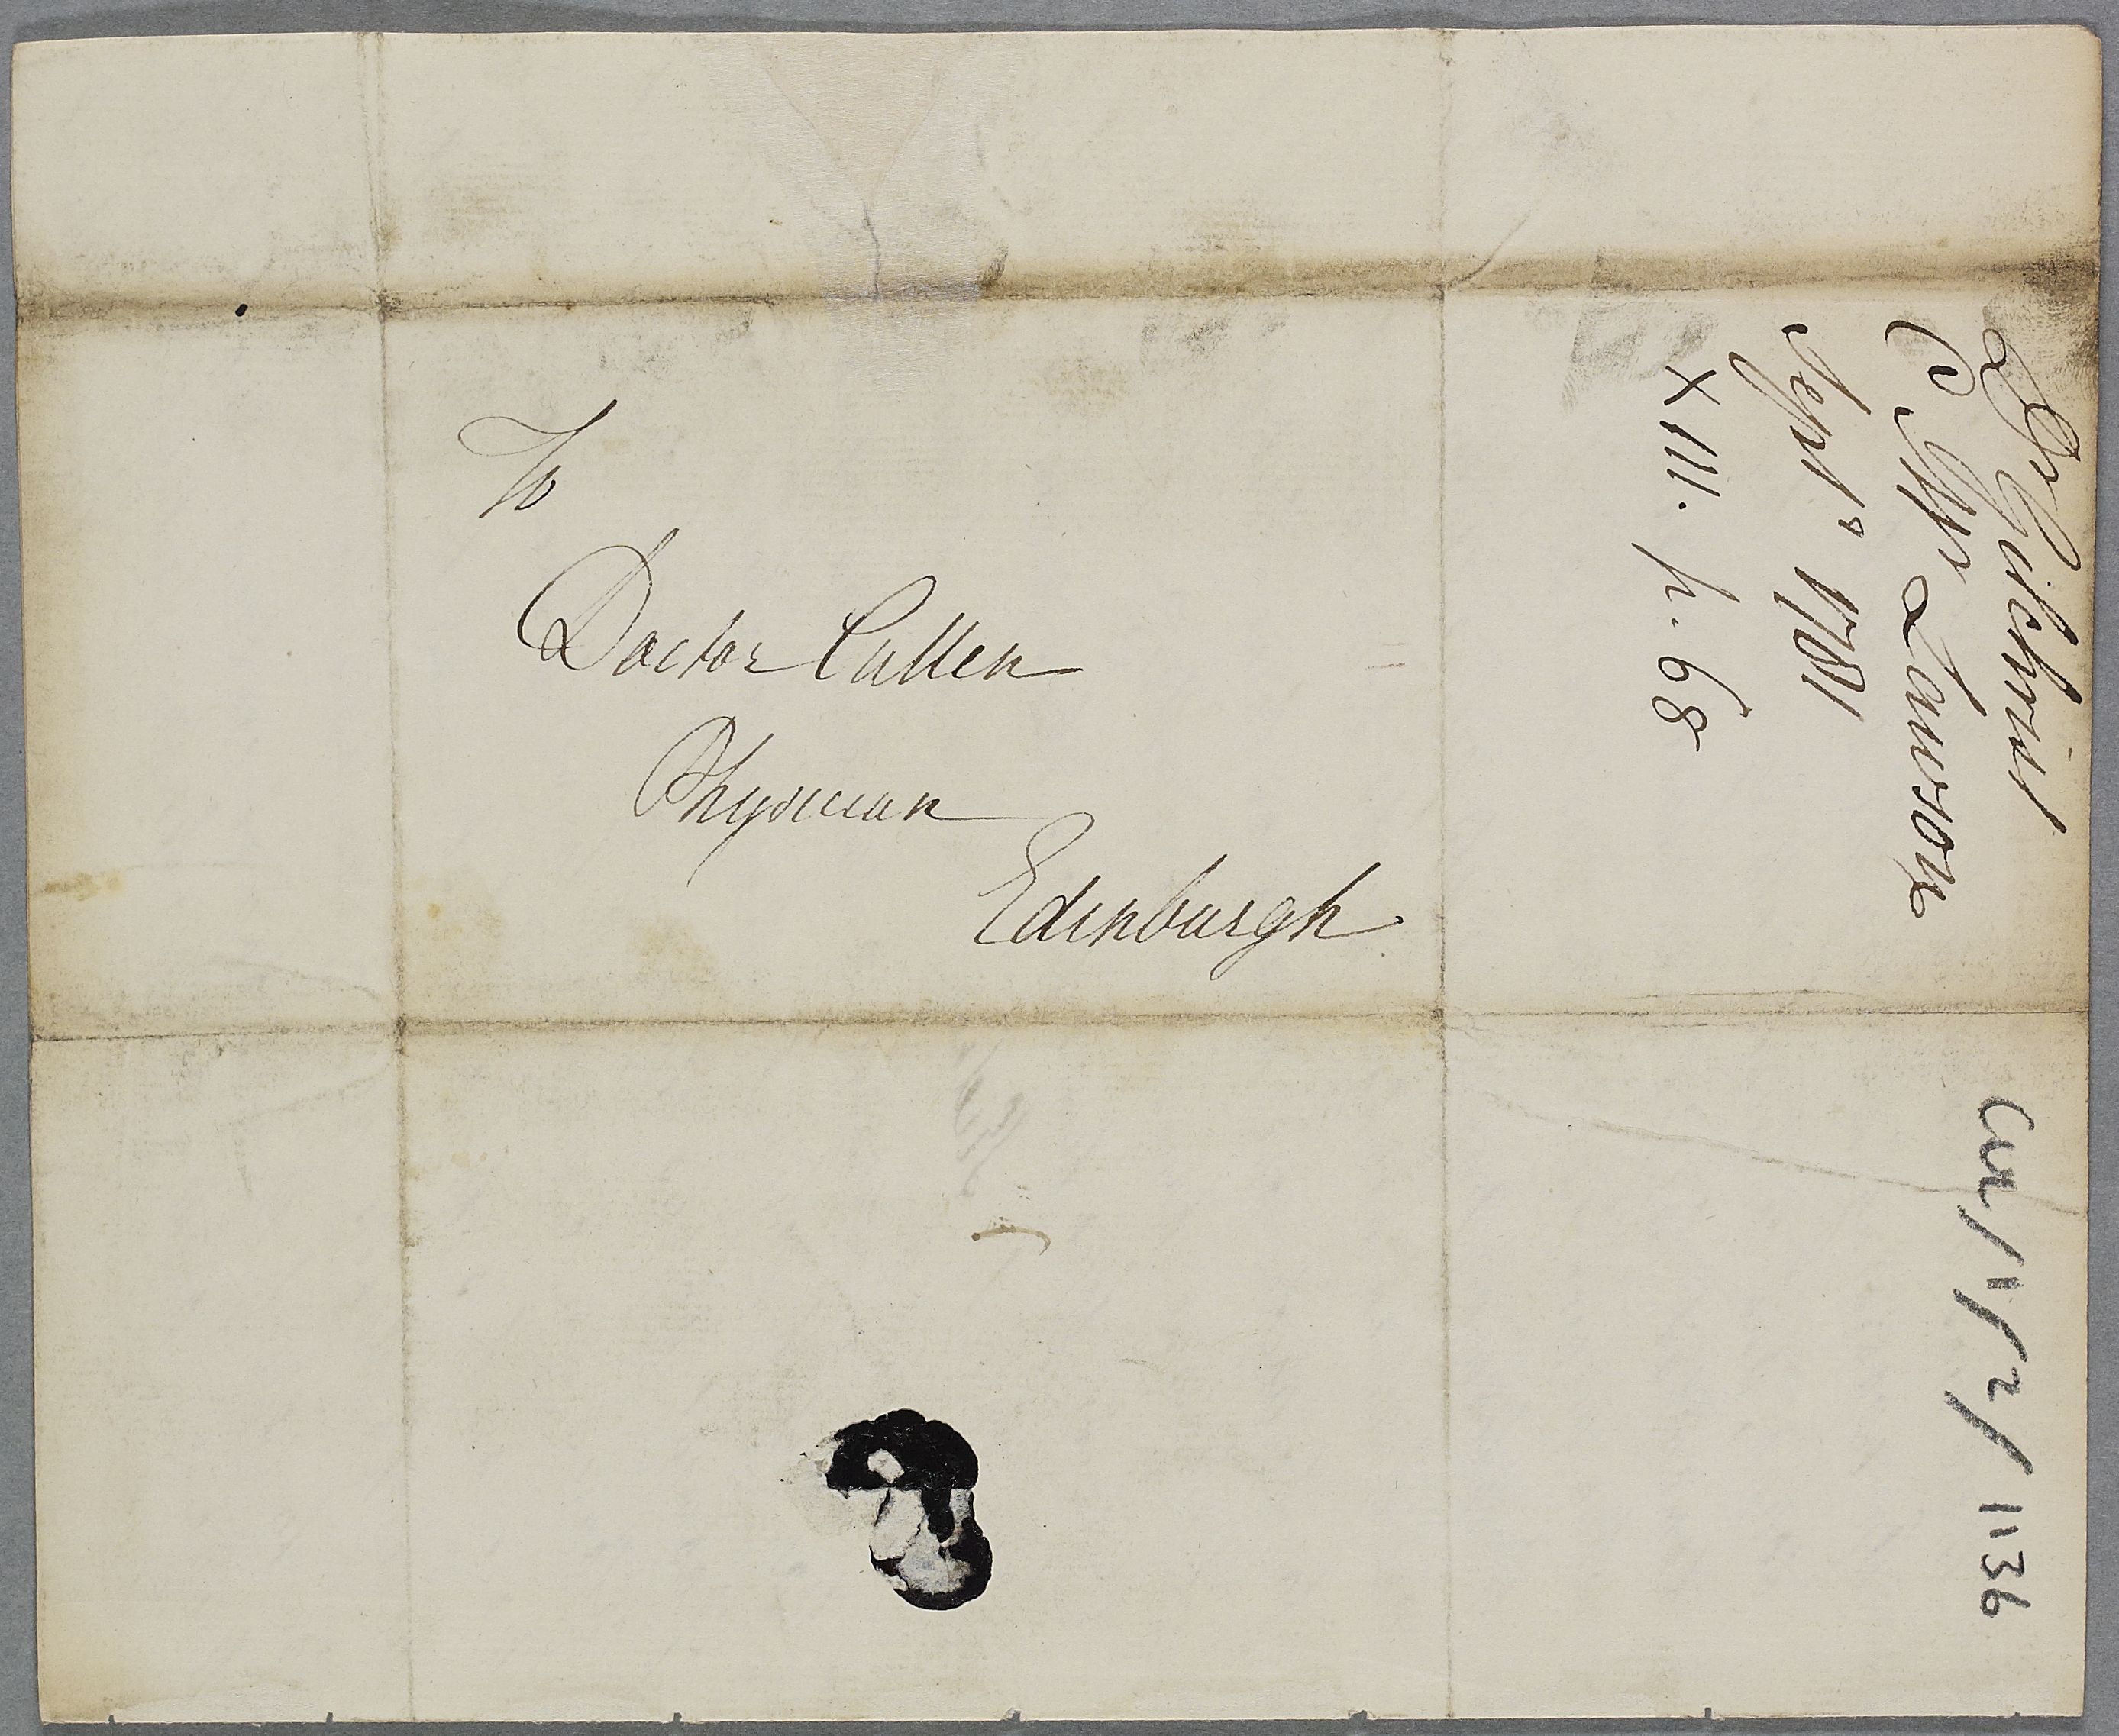 To
Doctor Cullen
Physician
Edinburgh
Dr Gilchrist
C. Mr Lawson
Sept.r 1781
XIII. p. 68
CUL/1/2/1136